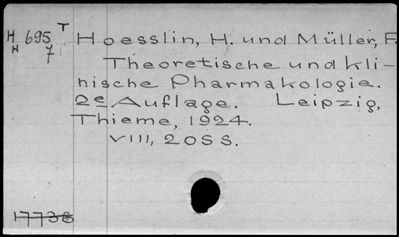 H 695 T Hoesslin, H. und Müller, F.
H 7 Theoretische und kli-
nische Pharmakologie.
2e Auflage. Leipzig,
Thieme, 1924.
VIII, 205 S.
17738